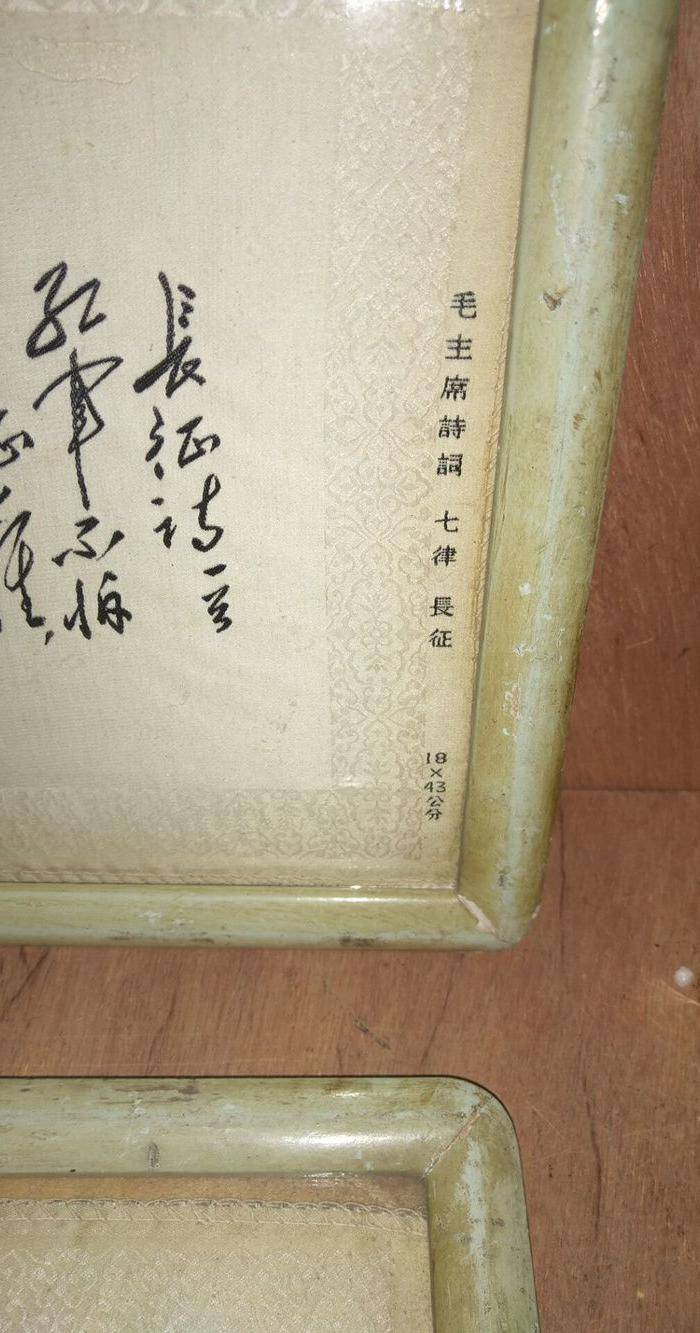 毛主席詩詞 七律 長征
18×43公分
長征詩一首
紅軍不怕
征難